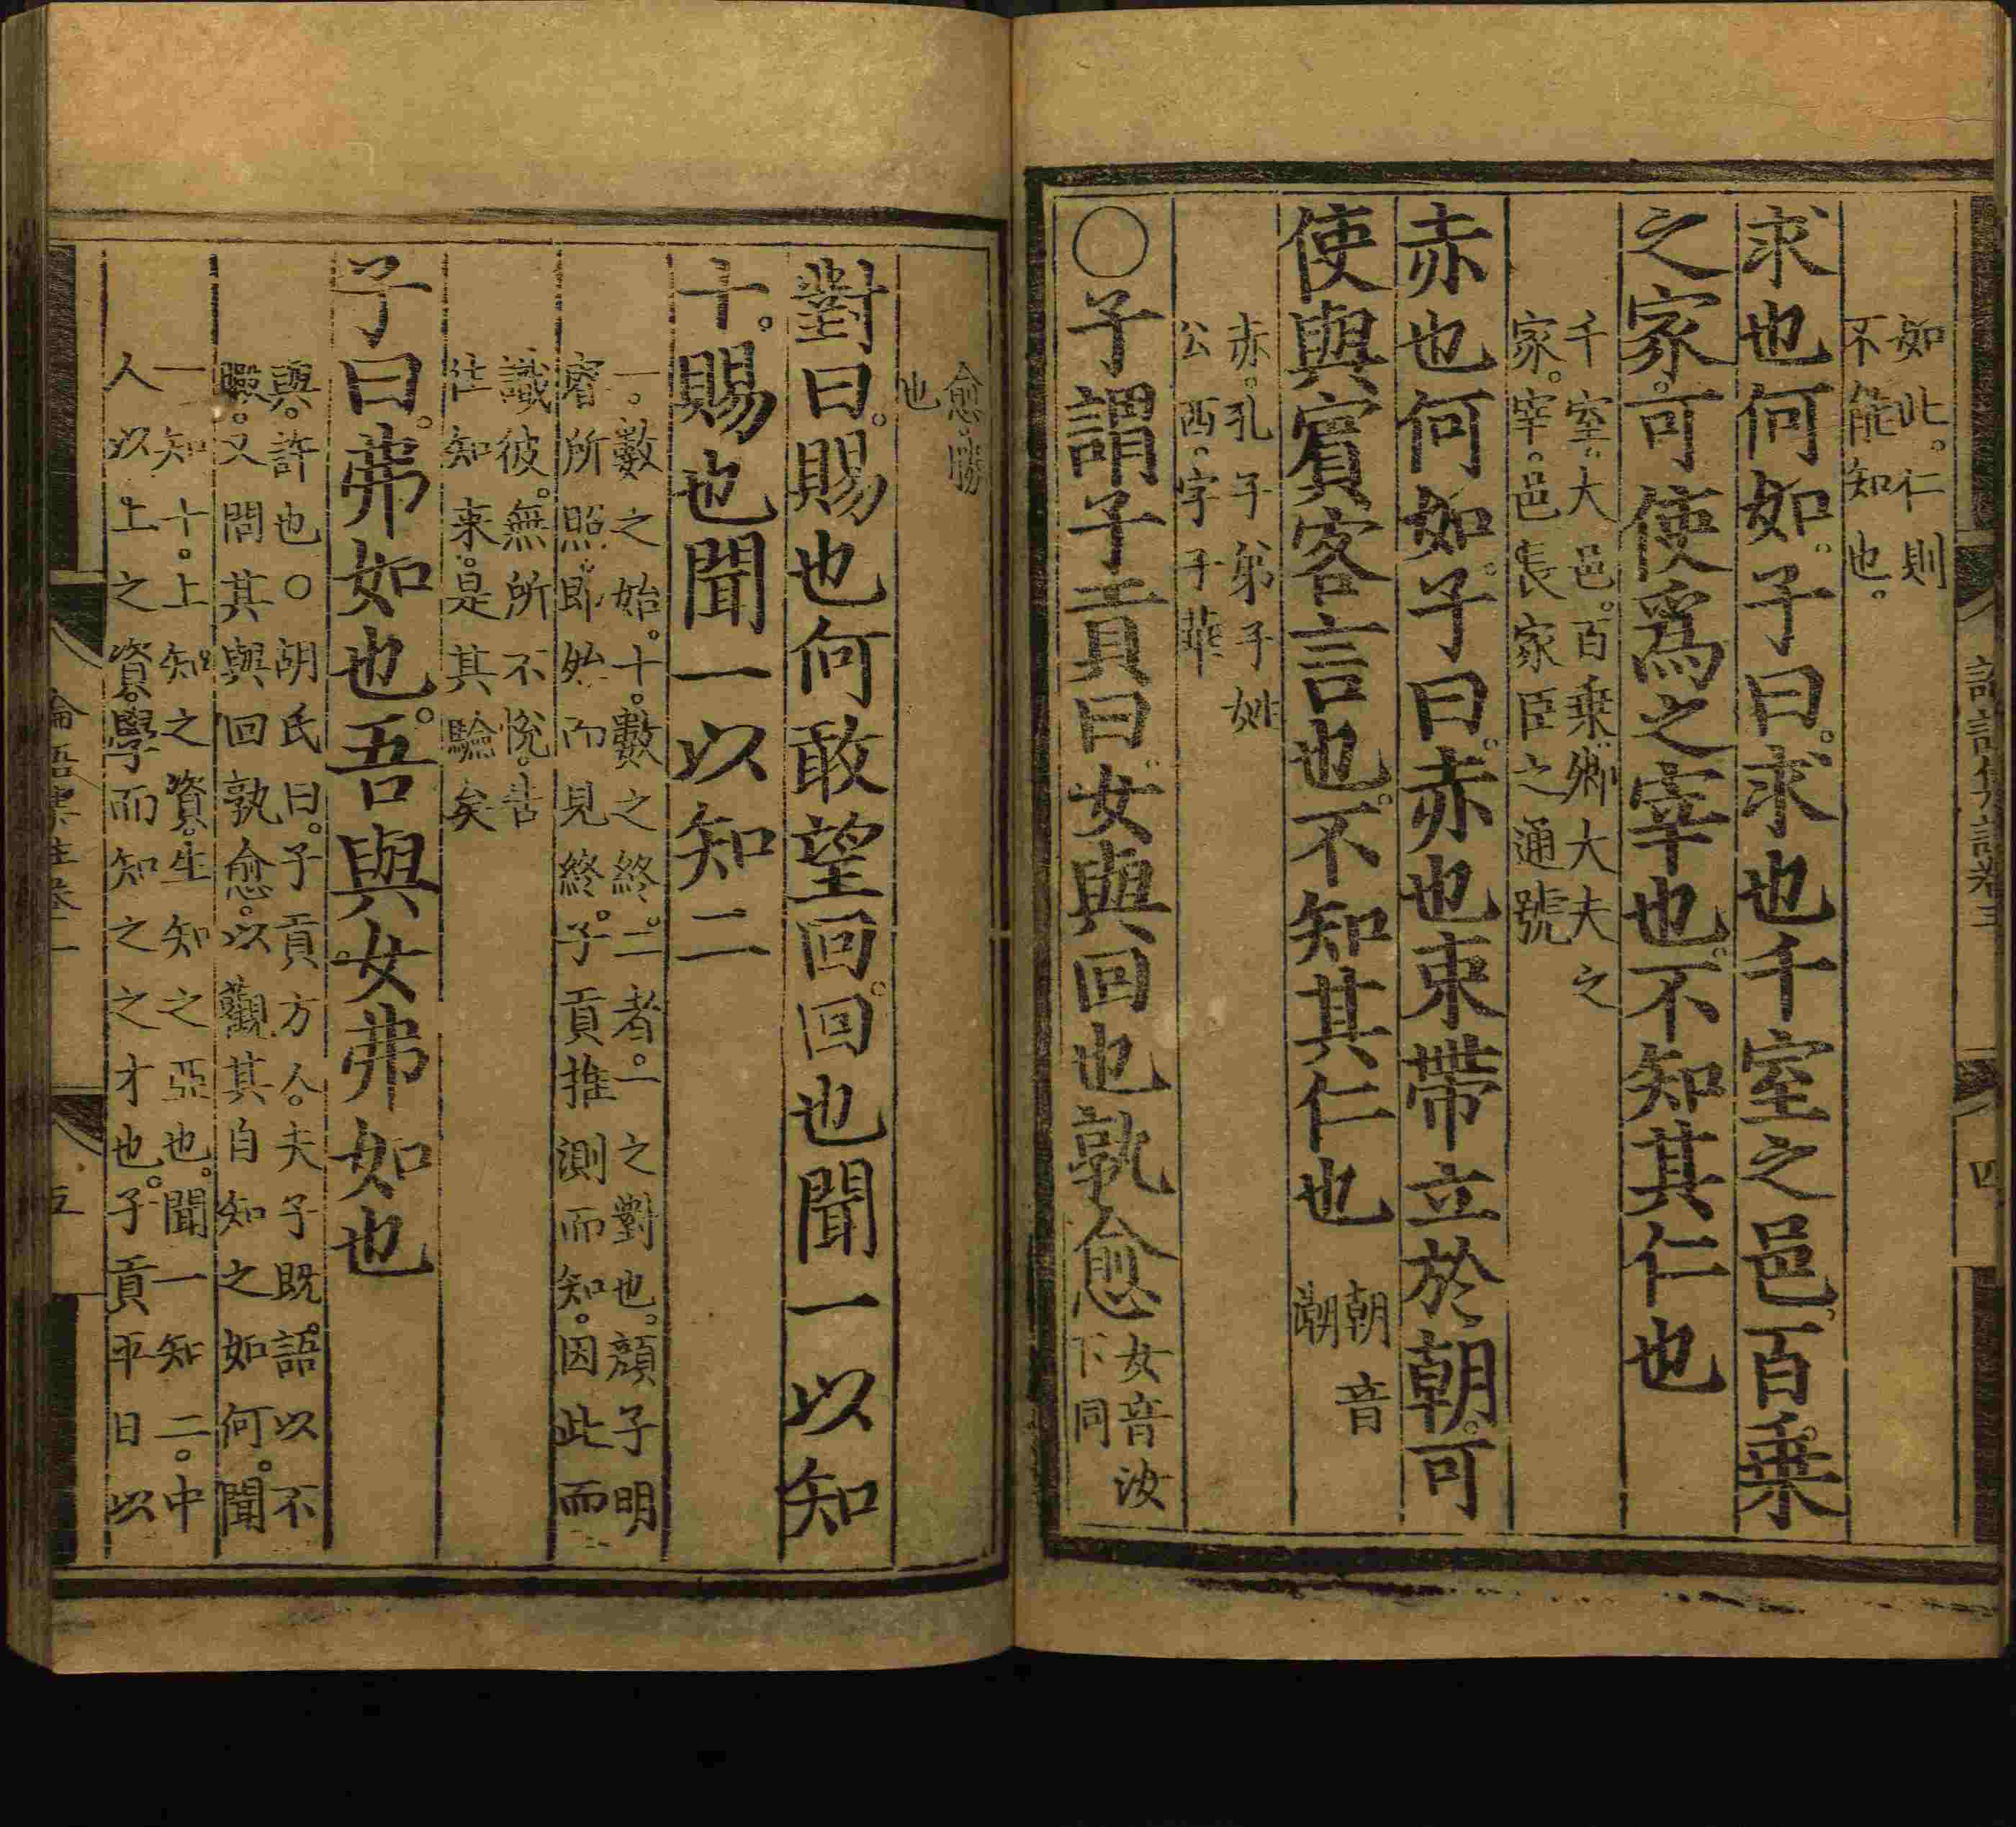 如此。仁則
不能知也。
求也何如。子曰。求也千室之邑。百乗
之家。可使爲之宰也。不知其仁也
千室。大邑。百乗。卿大夫之
家。宰。邑長家臣之通號
赤也何如。子曰。赤也束帶立於朝。可
使與賓客言也。不知其仁也
朝音
潮
赤。孔子弟子姓
公西。字子華
○子謂子貢曰。女與回也孰愈
女音汝
下同
愈。勝
也
對曰。賜也何敢望回。回也聞一以知
十。賜也聞一以知二
一。數之始。十。數之終。二者。一之對也。顔子明
睿所照。即始而見終。子貢推測而知。因此而
識彼。無所不悅。告
往知来。是其驗矣
子曰。弗如也。吾與女弗如也
與。許也○胡氏曰。子貢方人。夫子既語以不
暇。又問其與回孰愈。以觀其自知之如何。聞
一知十。上知之資。生知之亞也。聞一知二。中
人以上之資。學而知之之才也。子貢平日以
論語集註卷
五
四